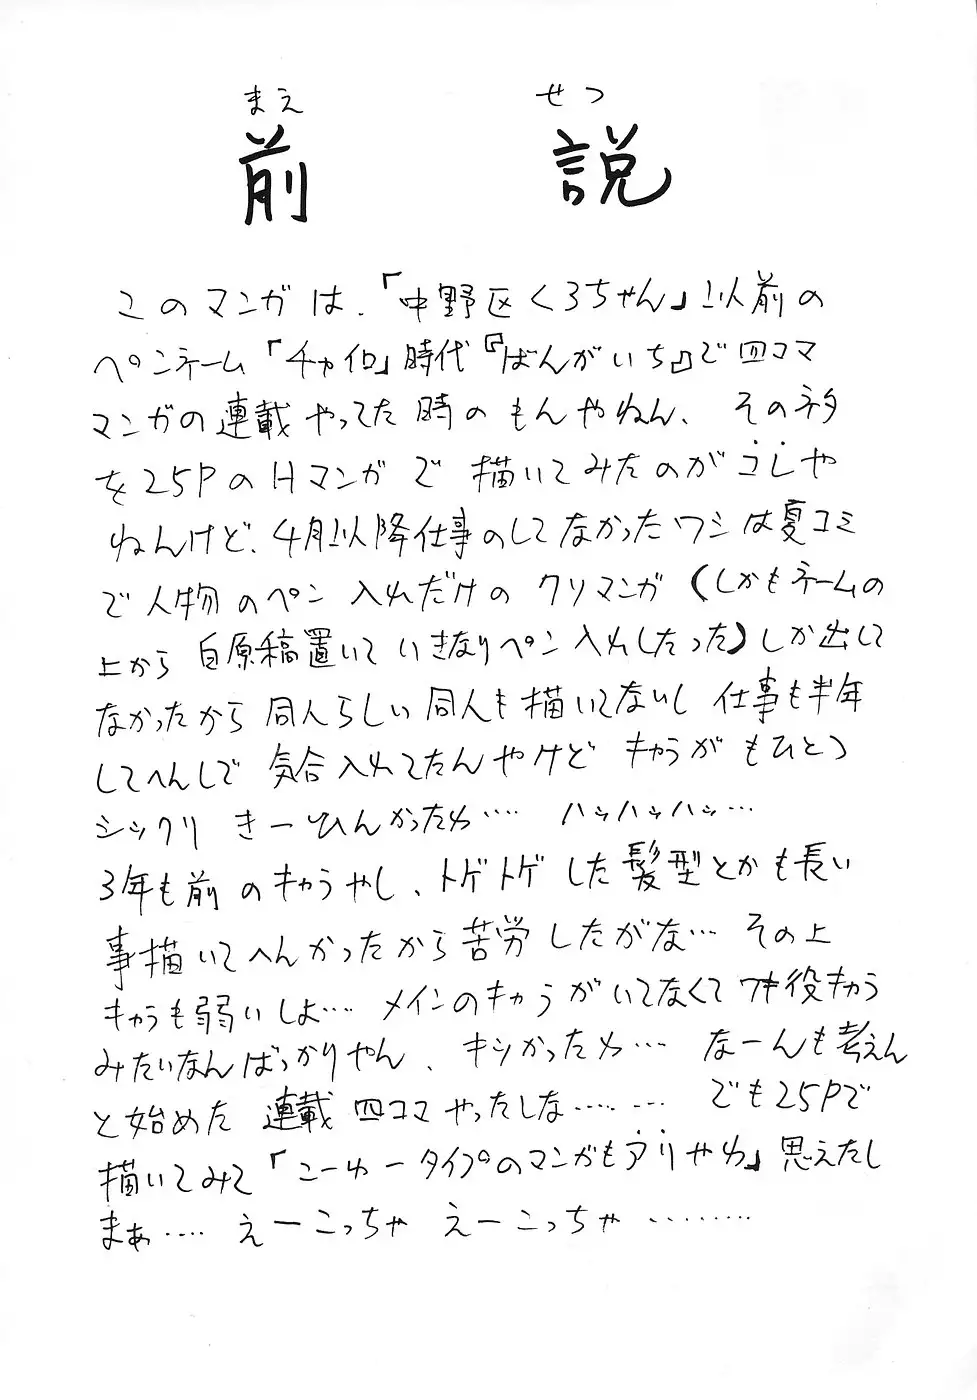 まえ せつ
前 説
このマンガは、「中野区くろちゃん」以前の
ペンネーム「チャイロ」時代『ばんがいち』で四コマ
マンガの連載やってた時のもんやねん、そのネタ
を25PのHマンガで描いてみたのがコレや
ねんけど、4月以降仕事のしてなかったワシは夏コミ
で人物のペン入れだけのクソマンガ(しかもネームの
上から白原稿置いていきなりペン入れしたった)しか出して
なかったから同人らしい同人も描いてないし仕事も半年
してへんしで気合入れてたんやけどキャラがもひとつ
シックリきーひんかったわ…‥ ハッハッハッ…
3年も前のキャラやし、トゲトゲした髪型とかも長い
事描いてへんかったから苦労したがな… その上
キャラも弱いしよ…‥ メインのキャラがいてなくてワキ役キャラ
みたいなんばっかりやん、キツかったわ… なーんも考えん
と始めた連載四コマやったしな……… でも25Pで
描いてみて「こーゆータイプのマンガもアリやわ」思えたし
まぁ…‥ えーこっちゃ えーこっちゃ ………